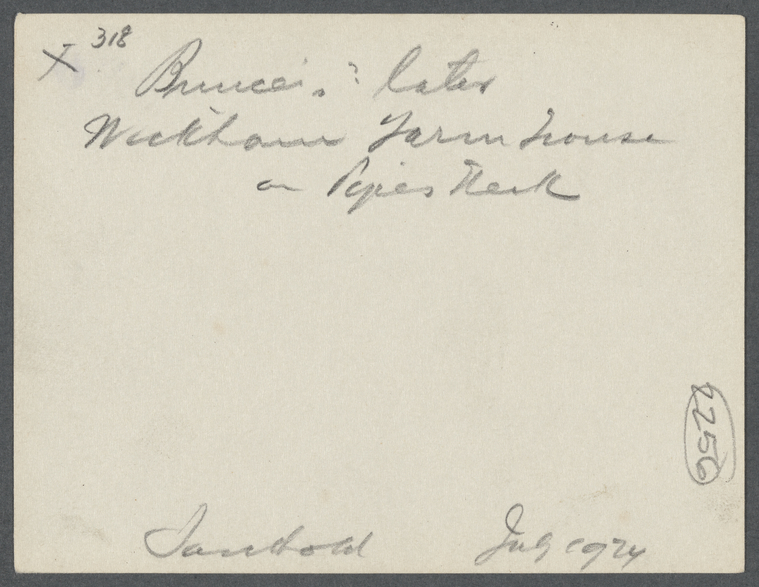 X 318
Bruce's? later
Wickham Farm house
on Pipes Neck
2256
Southold July 1924